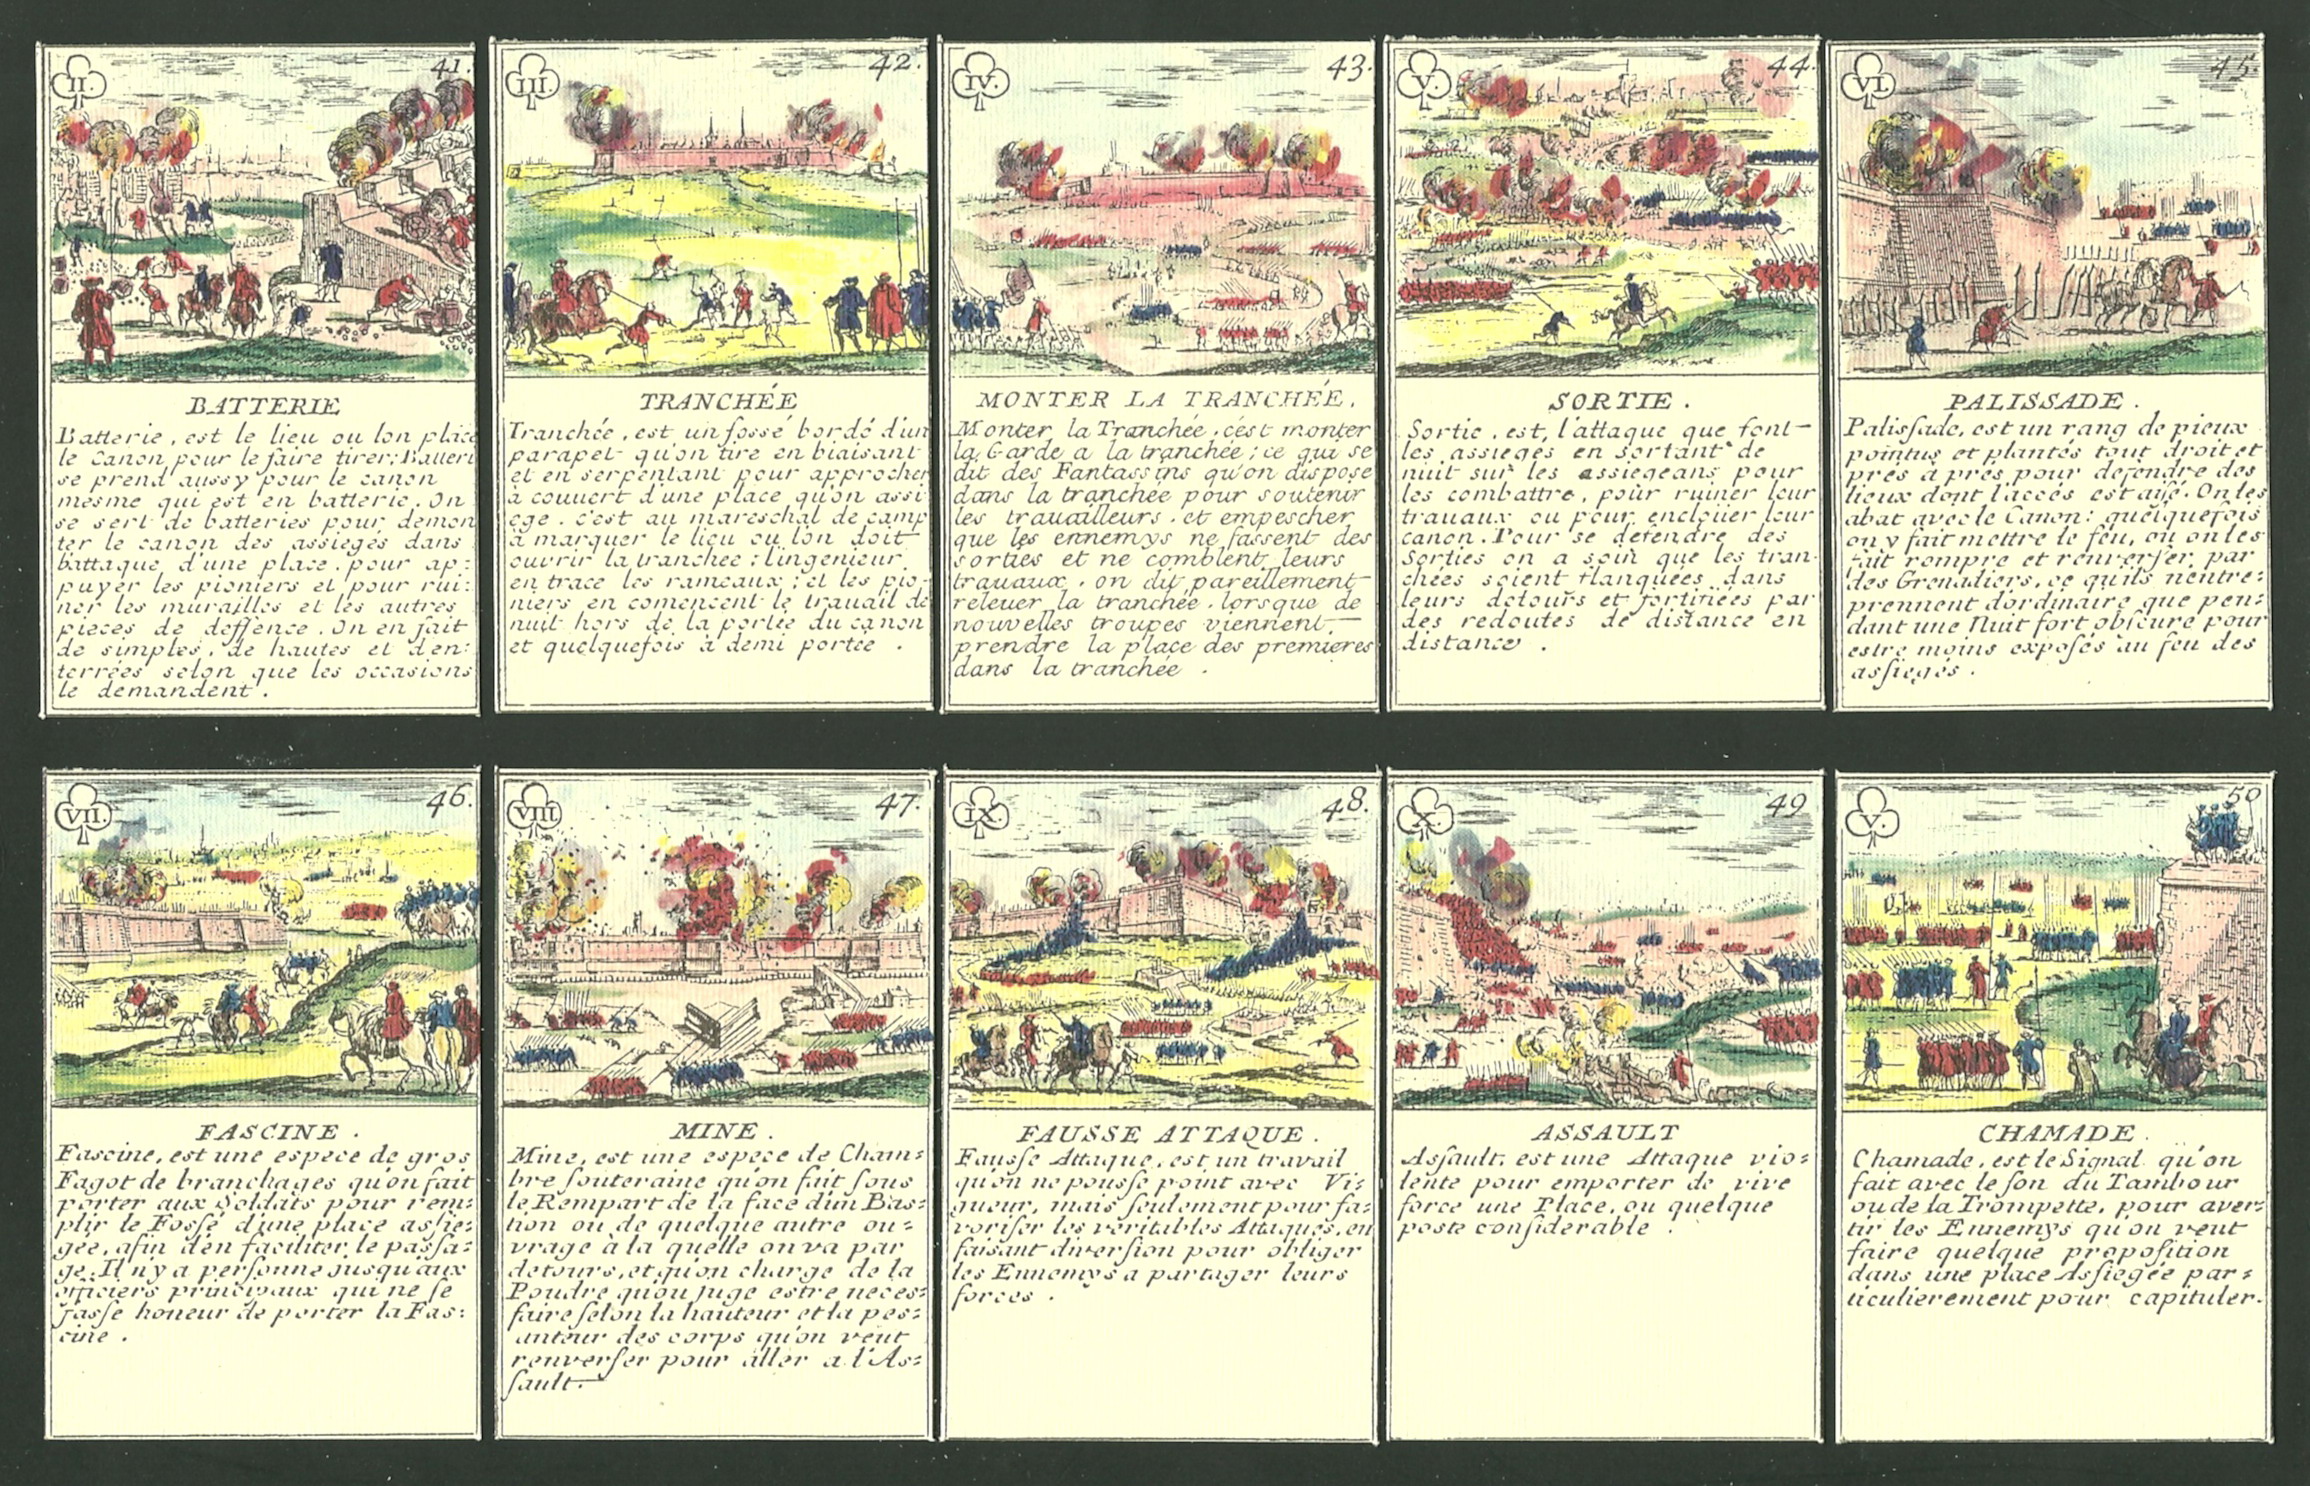 II.
41.
BATTERIE
Batterie, est le lieu ou lon place
le Canon pour le faire tirer; Batteri
se prend aussy pour le canon
mesme qui est en batterie. On
se sert de batteries pour demon
ter le canon des assiegés dans
l'attaque d'une place. pour ap:
puyer les pioniers et pour rui:
ner les murailles et les autres
pieces de deffence. On en fait
de simples, de hautes et d'en:
terrées selon que les occasions
le demandent.
III.
42.
TRANCHÉE
Tranchée, est un fossé bordé d'un
parapet qu'on tire en biaisant
et en serpentant pour approcher
à couvert d'une place qu'on assi
ege. c'est au mareschal de camp
à marquer le lieu ou lon doit
ouvrir la tranchée: l'ingenieur
en trace les rameaux; et les pio-
niers en comencent le travail de
nuit hors de la portée du canon
et quelquefois à demi portée.
IV.
43.
MONTER LA TRANCHÉE.
Monter la Tranchée, c'est monter
la Garde a la tranchée; ce qui se
dit des Fantassins qu'on dispose
dans la tranchée pour soutenir
les travailleurs, et empescher
que les ennemys ne fassent des
sorties et ne comblent leurs
travaux, on dit pareillement
relever la tranchée, lorsque de
nouvelles troupes viennent
prendre la place des premieres
dans la tranchée.
V.
44.
SORTIE.
Sortie, est, l'attaque que font
les assiegés en sortant de
nuit sur les assiegeans pour
les combattre, pour ruiner leur
travaux ou pour enclouer leur
canon. Pour se defendre des
Sorties on a soin que les tran-
chées soient flanquées dans
leurs detours et fortifiées par
des redoutes de distance en
distance.
VI
45.
PALISSADE.
Palissade, est un rang de pieux
pointus et plantés tout droit et
prés à prés pour defendre des
lieux dont l'accés est aisé. On les
abat avec le Canon: quelquefois
on y fait mettre le feu, ou on les
fait rompre et renverser par
des Grenadiers, ce qu'ils n'entre:
prennent d'ordinaire que pen:
dant une Nuit fort obscure pour
estre moins exposés au feu des
assiegés.
VII.
46.
FASCINE.
Fascine, est une espece de gros
Fagot de branchages qu'on fait
porter aux Soldats pour rem:
plir le Fossé d'une place assie:
gée, afin d'en faciliter le passa:
ge. Il n'y a personne jusqu'aux
officiers principaux qui ne se
fasse honeur de porter la Fas:
cine.
VIII
47.
MINE.
Mine, est une espece de Cham:
bre souteraine qu'on fait sous
le Rempart de la face d'un Bas:
tion ou de quelque autre ou:
vrage à la quelle on va par
detours, et qu'on charge de la
Poudre qu'on juge estre neces:
saire selon la hauteur et la pes:
anteur des corps qu'on veut
renverser pour aller a l'As:
sault.
IX.
48.
FAUSSE ATTAQUE.
Fausse Attaque, est un travail
qu'on ne pousse point avec Vi:
gueur, mais seulement pour fa:
voriser les véritables Attaques, en
faisant diversion pour obliger
les Ennemys a partager leurs
forces.
X
49
ASSAULT
Assault, est une Attaque vio:
lente pour emporter de vive
force une Place, ou quelque
poste considerable.
V.
50
CHAMADE.
Chamade, est le Signal qu'on
fait avec le son du Tambour
ou de la Trompette, pour aver:
tir les Ennemys qu'on veut
faire quelque proposition
dans une place Assiegée par:
ticulierement pour capituler.